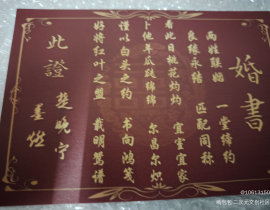 婚書
两姓联姻 一堂缔约
良缘永结 匹配同称
看此日桃花灼灼 宜室宜家
卜他年瓜瓞绵绵 尔昌尔炽
谨以白头之约 书向鸿笺
好将红叶之盟 载明鸳谱
此證
楚晚宁
墨燃